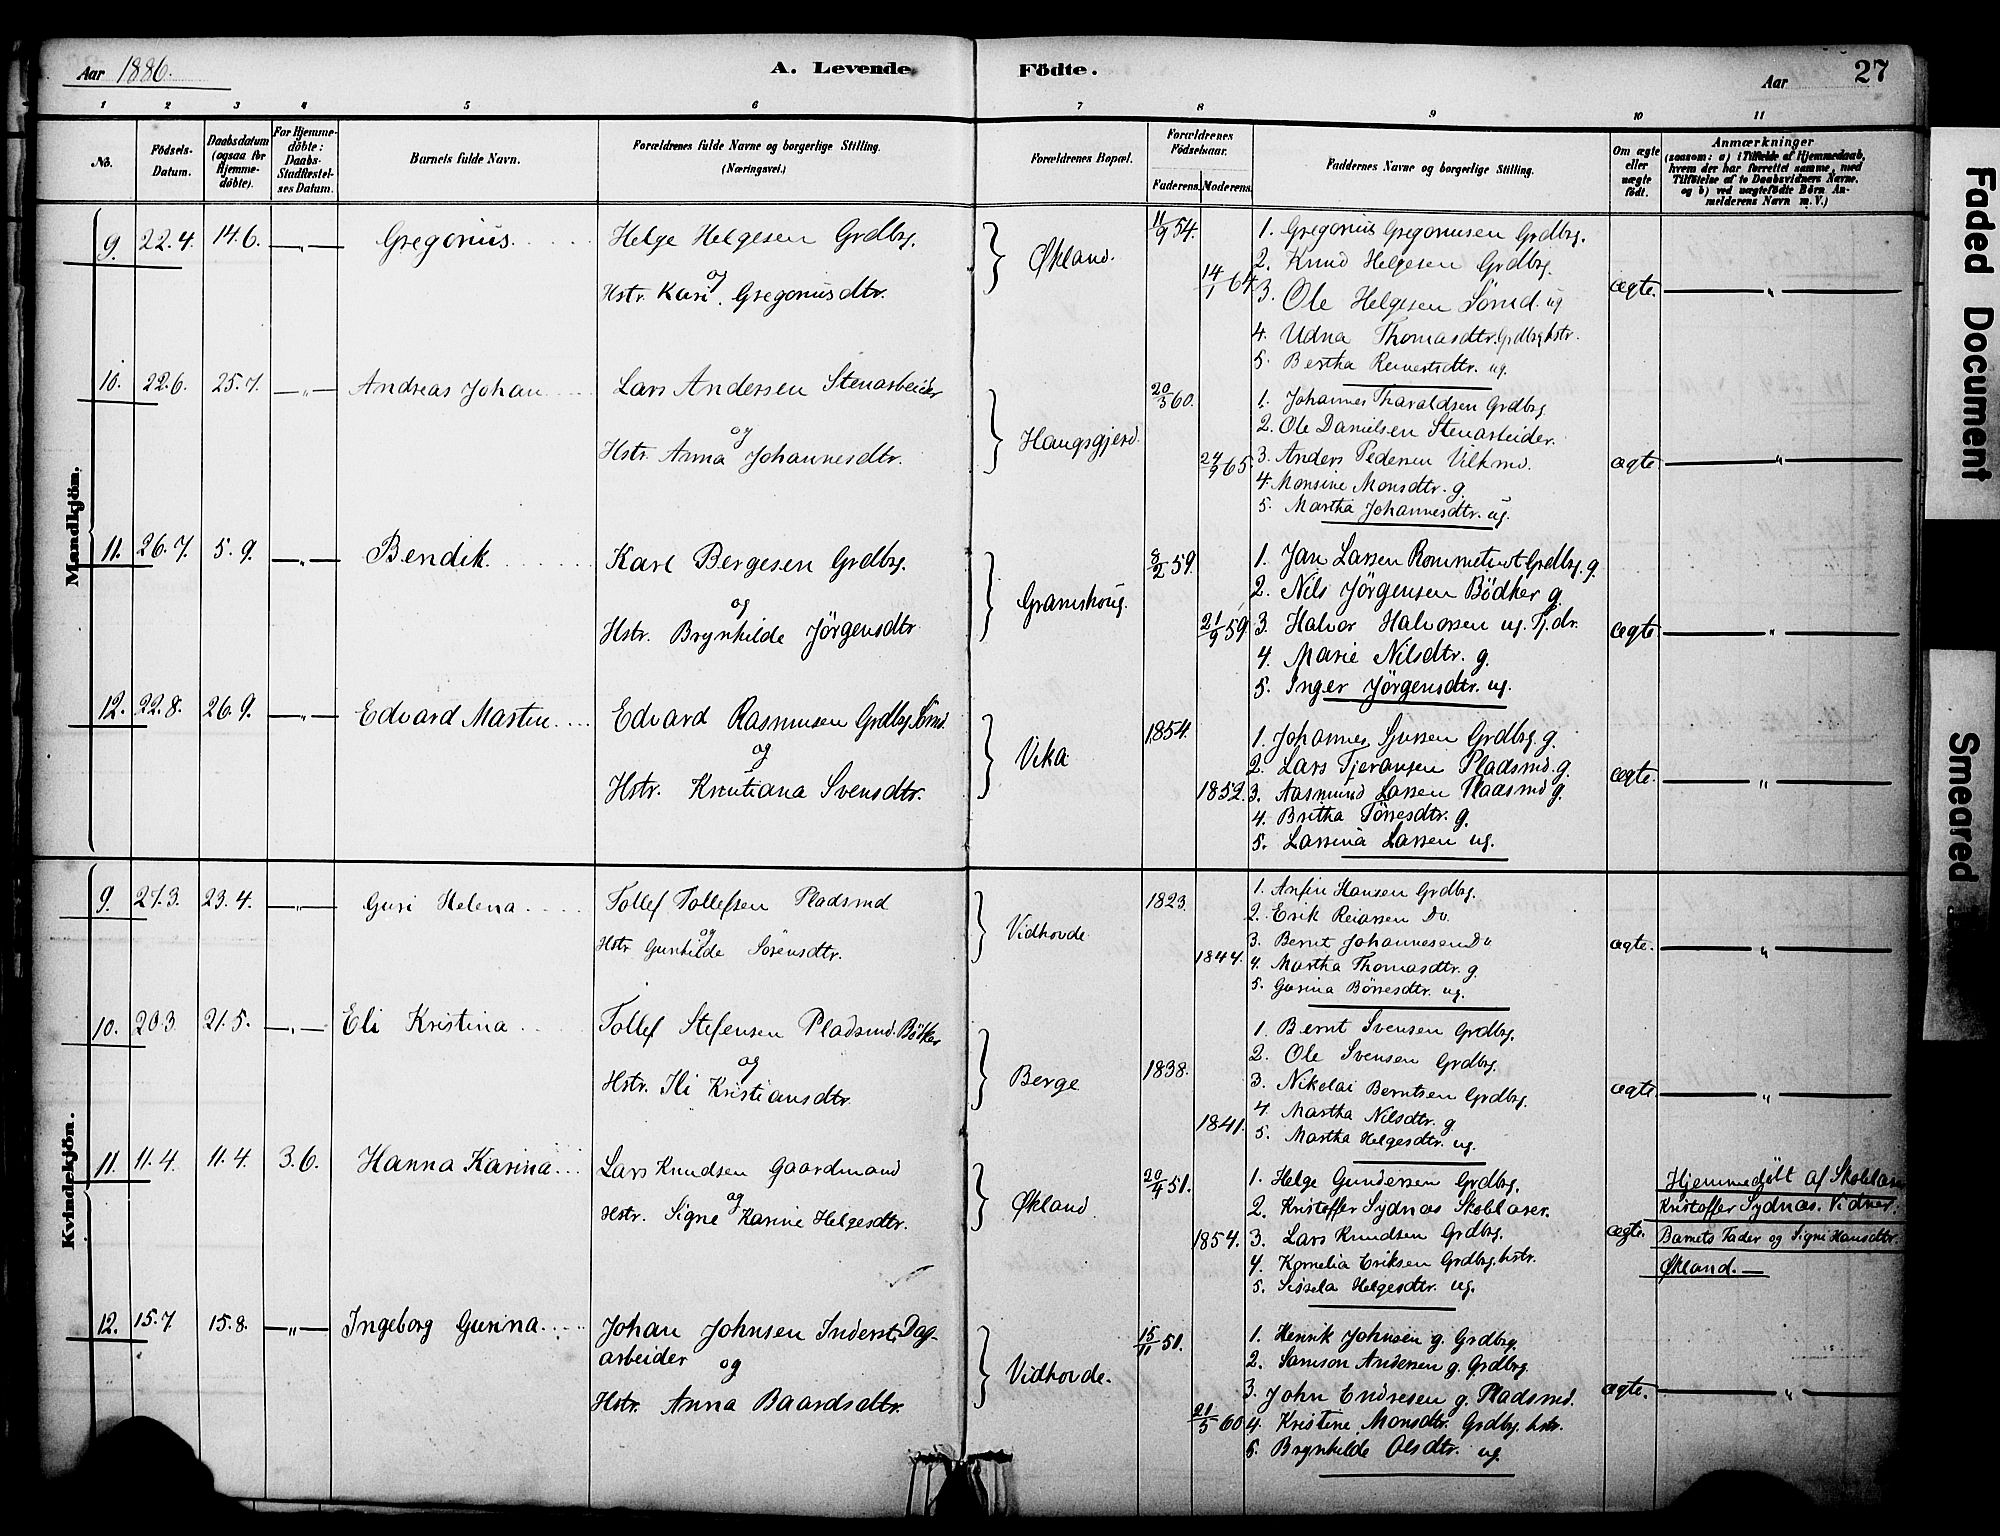 Aar 1886.
A. Levende Födte.
Aar
27
1 2 3 4 5 6 7 8 9 10 11
No.
Födsels-Datum.
Daabsdatum (ogsaa for Hjemme-döbte).
For Hjemme-döbte: Daabs-Stadfæstelses Datum.
Barnets fulde Navn.
Forældrenes fulde Navne og borgerlige Stilling.
(Næringsvei.)
Forældrenes Bopæl.
Forældrenes Födselsaar.
Faderens. Moderens.
Faddernes Navne og borgerlige Stilling.
Om ægte eller uægte födt.
Anmærkninger
(saasom: a) i Tilfælde af Hjemmedaab, hvem der har forrettet samme, med Tilföielse af to Daabsvidners Navne, og b) ved uægtefödte Börn Anmelderens Navn m. V.)
Mandkjön.
9. 22.4. 14.6. — „ — Gregorius. Helge Helgesen Grdbrg.
og
Hstr. Kari Gregoriusdtr.
Økland.
11/9 54.
14/1 64.
1. Gregorius Gregoriusen Grdbrg.
2. Knud Helgesen Grdbrg.
3. Ole Helgesen Sømd. ug
4. Udna Thomasdtr. Grdbrg hstr.
5. Bertha dtr. ug.
ægte. — „ —
10. 22.6. 25.7. — „ — Andreas Johan Lars Andersen Stenarbeider
og
Hstr. Anna Johannesdtr.
Haugsgjerd.
20/5 60.
24/9 65.
1. Johannes Tharaldsen Grdbrg
2. Ole Danielsen Stenarbeider.
3. Anders Pedersen
4. Monsine Monsdtr. g.
5. Martha Johannesdtr. ug.
ægte — „ —
11. 26.7. 5.9. — „ — Bendik. Karl Bergesen Grdbrg.
og
Hstr. Brynhilde Jörgensdtr.
Gramshoug.
8/2 59.
21/9 59.
1. Jan Larsen Rommetvet Grdbrg. g.
2. Nils Jörgensen Bödker g.
3. Halvor Halvorsen ug. Tj.dr.
4. Marie Nilsdtr. g.
5. Inger Jörgensdtr. ug.
ægte — „ —
12. 22.8. 26.9. — „ — Edvard Martin Edvard Rasmusen Grdbrg Sømd
og
Hstr. Kristiana Svensdtr.
Vika
1854.
1852.
1. Johannes Sjursen Grdbrg. g.
2. Lars Tjeransen Pladsmd. g.
3. Aasmund Larsen Pladsmd g.
4. Britha Tørresdtr. g.
5. Larsina Larsen ug.
ægte. — „ —
Kvindekjön.
9. 27.3. 23.4. — „ — Guri Helena Tollef Tollefsen Pladsmd
og
Hstr Gunhilde Sörensdtr.
Vidhovde
1823.
1844.
1. Anfin Hansen Grdbrg.
2. Erik Reiarsen Do
3. Bernt Johannesen Do
4. Martha Thomasdtr. g.
5. Gurina Børresdtr. ug.
ægte. — „ —
10. 20.3. 21.5. — „ — Eli Kristina Tollef Stefensen Pladsmd. Bötker
og
Hstr. Ili Kristiansdtr.
Berge
1838.
1841.
1. Bernt Svensen Grdbrg.
2. Ole Svensen Grdbrg.
3. Nikolai Berntsen Grdbrg.
4. Martha Nilsdtr. g.
5. Martha Helgesdtr. ug.
ægte. — „ —
11. 11.4. 11.4. 3.6. Hanna Karina Lars Knudsen Gaardmand
og
Hstr. Signe Karine Helgesdtr.
Økland.
20/4 51.
1854.
1. Helge Gundersen Grdbrg.
2. Kristoffer Sydnæs Skolelærer.
3. Lars Knudsen Grdbrg.
4. Kornelia Eriksen Grdbrg. hstr.
5. Sissela Helgesdtr. ug.
ægte.
Hjemmedøbt af Skolelærer
Kristoffer Sydnæs. Vidner:
Barnets Fader og Signi Hansdtr.
Økland. —
12. 15.7. 15.8. — „ — Ingeborg Gurina Johan Johnsen Inderst, Dag-
arbeider og
Hstr. Anna Baardsdtr.
Vidhovde.
15/11 51.
21/5 60
1. Henrik Johnsen g. Grdbrg.
2. Samson Andersen g. Grdbrg
3. John Endresen g. Pladsmd.
4. Kristine Monsdtr. Grdbrg. hstr.
5. Brynhilde Olsdtr. ug.
ægte. — „ —
Faded Document
Smeared